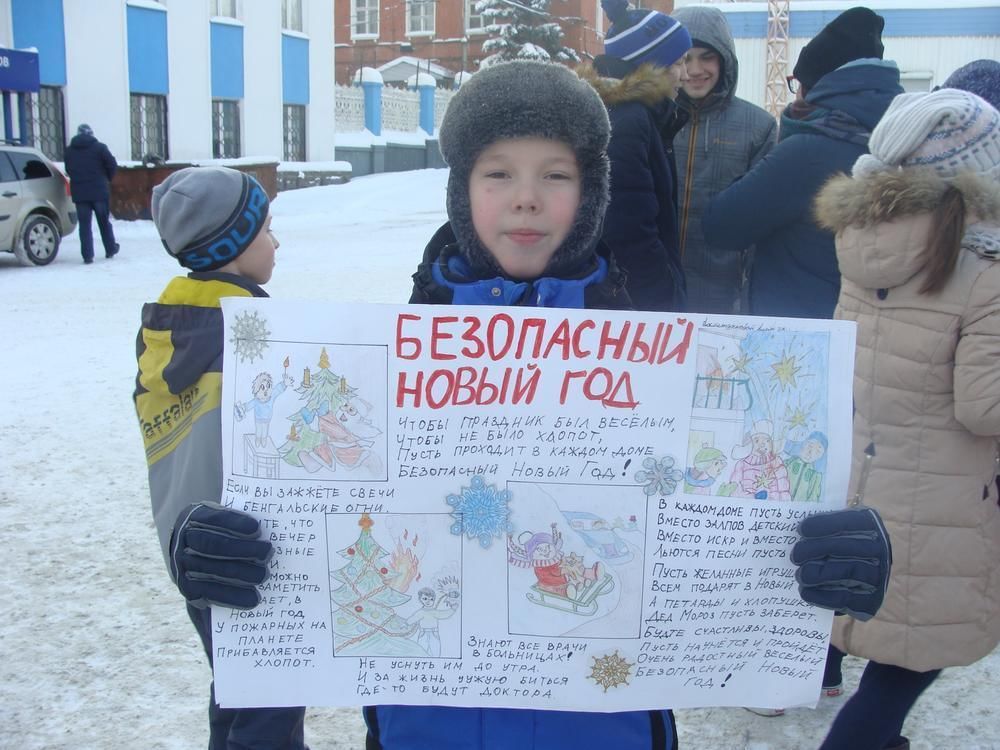 БЕЗОПАСНЫЙ
НОВЫЙ ГОД
ЧТОБЫ ПРАЗДНИК БЫЛ ВЕСЁЛЫМ,
ЧТОБЫ НЕ БЫЛО ХЛОПОТ,
ПУСТЬ ПРОХОДИТ В КАЖДОМ ДОМЕ
БЕЗОПАСНЫЙ НОВЫЙ ГОД!
ЕСЛИ ВЫ ЗАЖЖЁТЕ СВЕЧИ
И БЕНГАЛЬСКИЕ ОГНИ,
ЧТО
ВЕЧЕР
МОЖНО
ЗАМЕТИТЬ
В
НОВЫЙ ГОД
У ПОЖАРНЫХ НА
ПЛАНЕТЕ
ПРИБАВЛЯЕТСЯ
ХЛОПОТ.
ЗНАЮТ ВСЕ ВРАЧИ
В БОЛЬНИЦАХ!
НЕ УСНУТЬ ИМ ДО УТРА.
И ЗА ЖИЗНЬ ЧУЖУЮ БИТЬСЯ
ГДЕ-ТО БУДУТ ДОКТОРА.
В КАЖДОМ ДОМЕ ПУСТЬ
ВМЕСТО ЗАЛПОВ ДЕТСКИЙ
ВМЕСТО ИСКР И ВМЕСТО
ЛЬЮТСЯ ПЕСНИ ПУСТЬ
ПУСТЬ ЖЕЛАННЫЕ
ВСЕМ ПОДАРЯТ В НОВЫЙ
А ПЕТАРДЫ И ХЛОПУШКИ
ДЕД МОРОЗ ПУСТЬ ЗАБЕРЕТ.
БУДТЕ СЧАСТЛИВЫ, ЗДОРОВЫ
ПУСТЬ НАЧНЁТСЯ И ПРОЙДЁТ
ОЧЕНЬ РАДОСТНЫЙ ВЕСЁЛЫЙ
БЕЗОПАСНЫЙ НОВЫЙ
ГОД!
SOUR